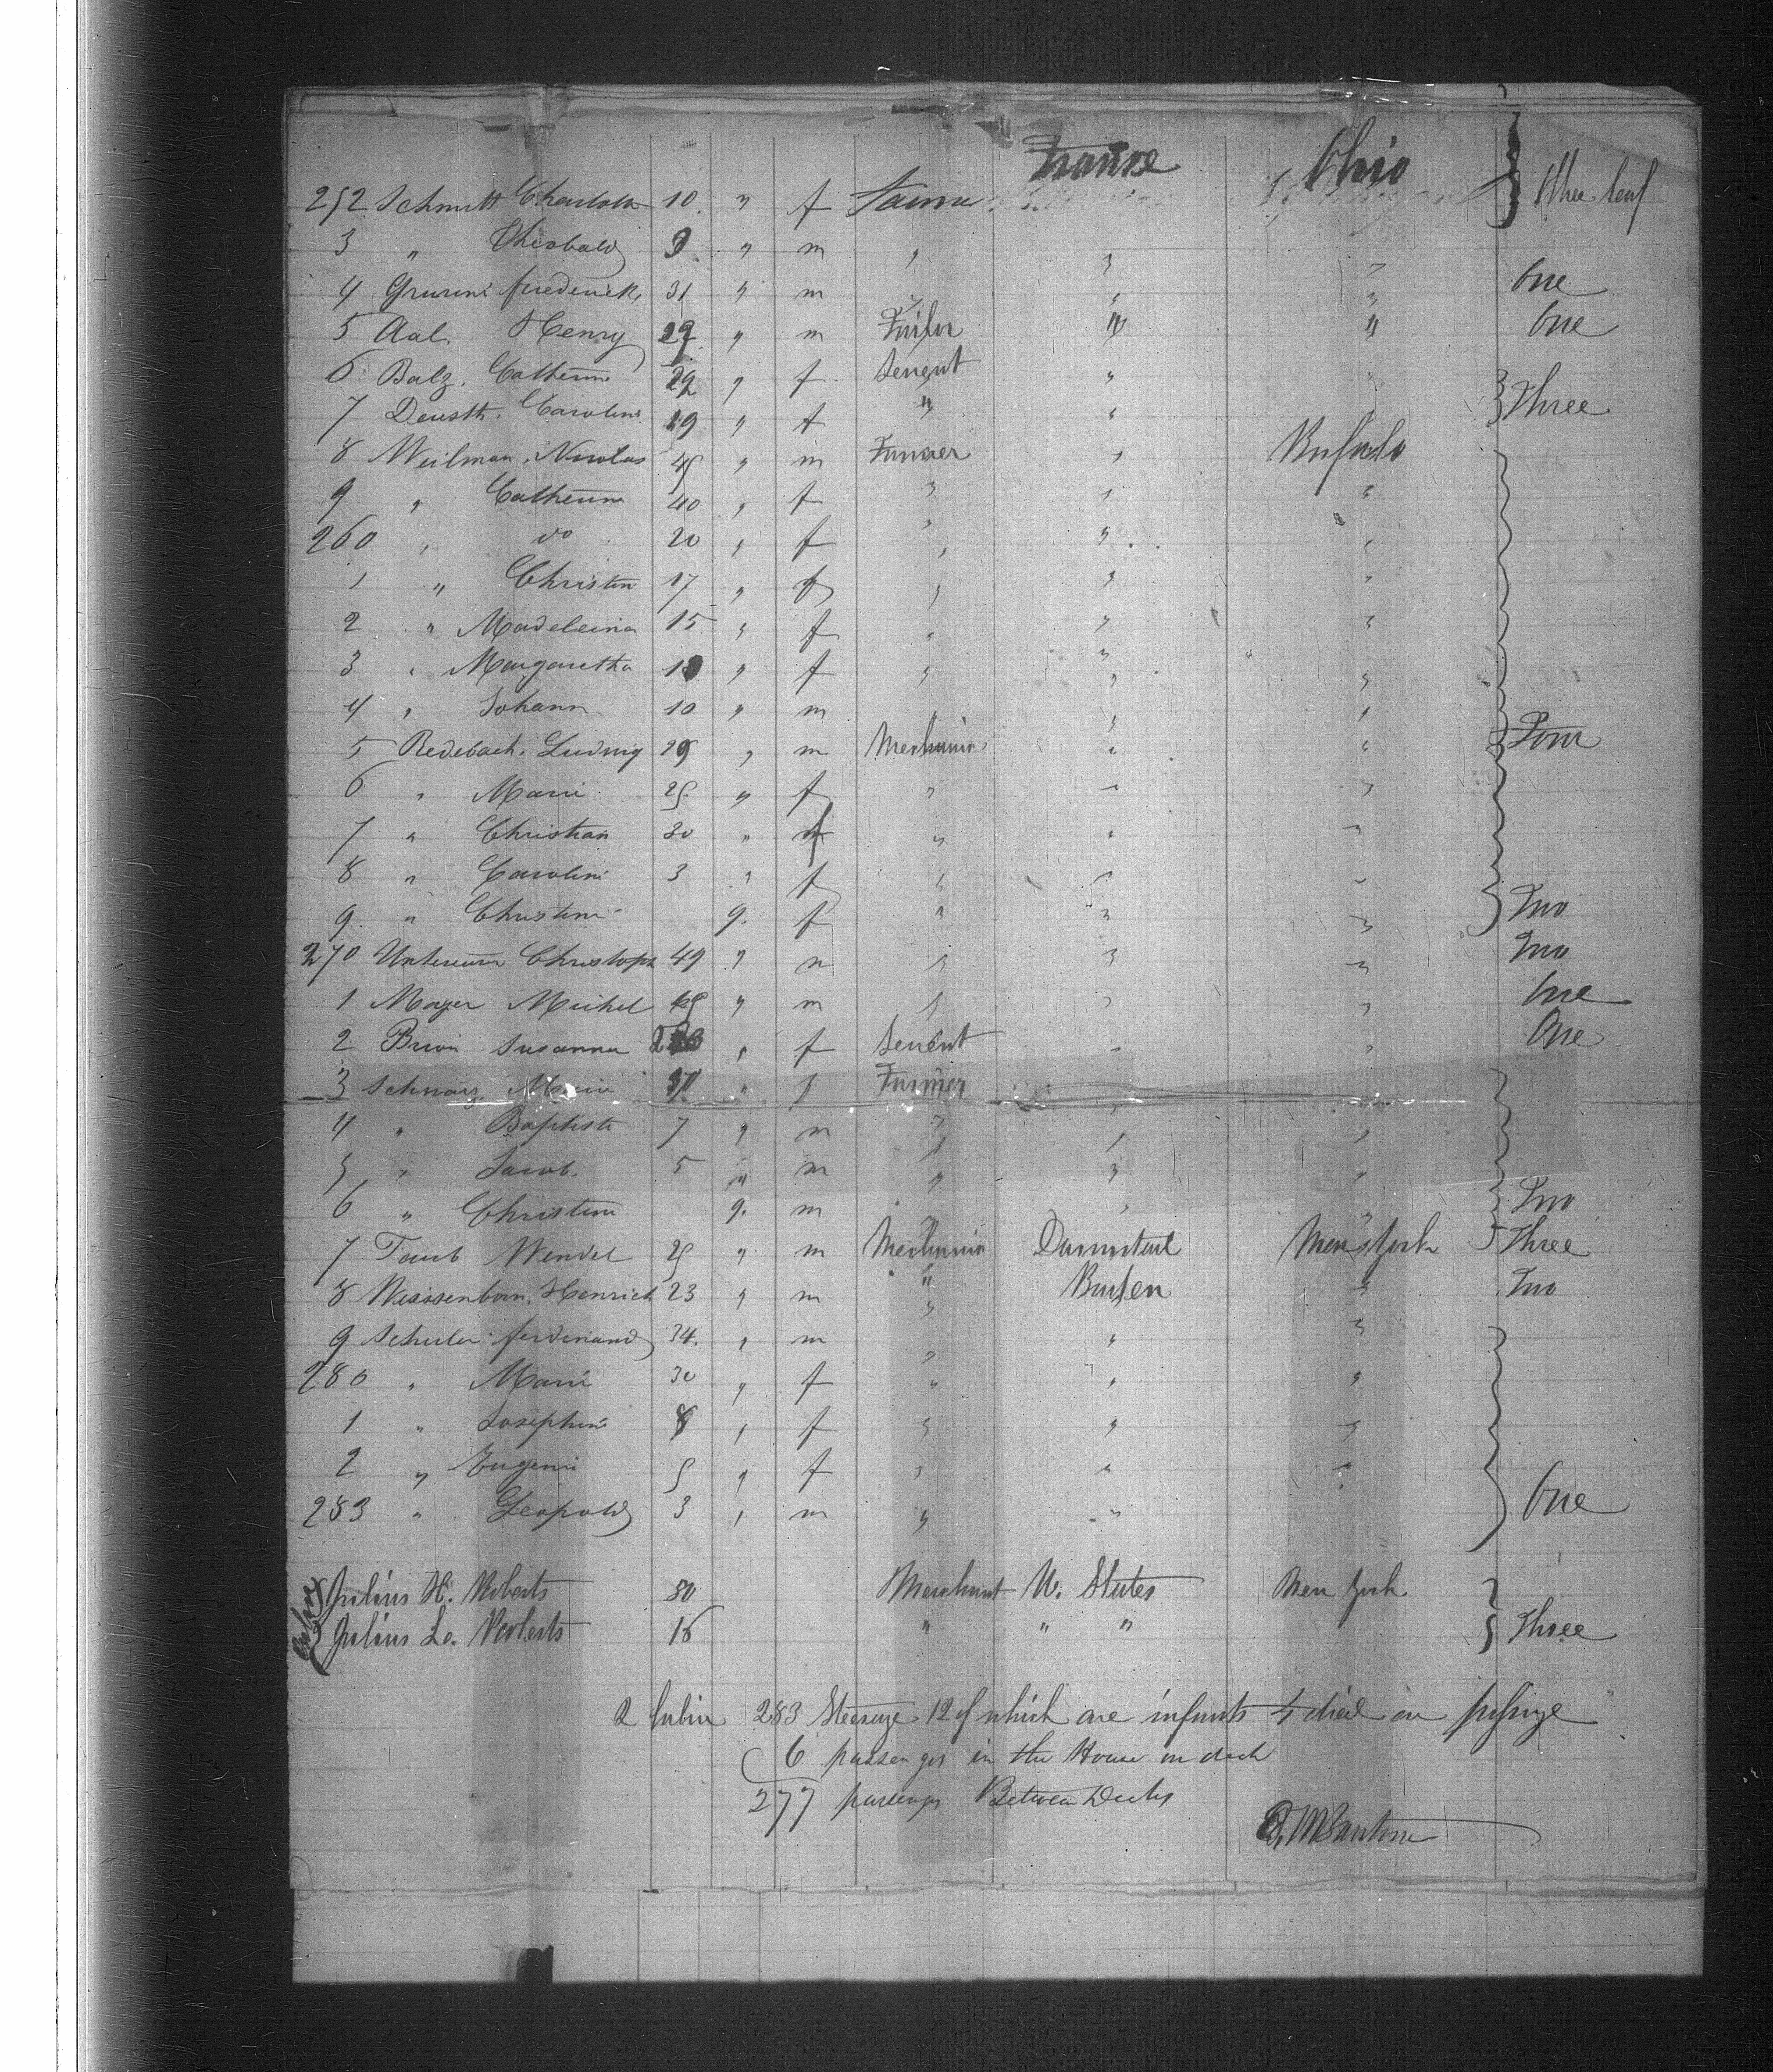 France Ohio
252 Schmitt Charlotte 10 " f Farmer
3 " Theobald 9 " m " " "
4 Frederick 31 " m " " " One
5 Aal Henry 29 " m Tailor " " One
6 Balz. Catherine 29 " f Servent "
7 Caroline 19 " f " " Three
8 Weilman, Nicolas 45 " m Farmer " Bufalo
9 " Catherine 40 " f " " "
260 " do 20 " f " " "
1 " Christin 17 " f " " "
2 " Madeleina 15 " f " " "
3 " Margaretha " f " " "
4 " Johann 10 " m " "
5 Redebach. Ludwig 29 " m Mechanic " " Four
6 " Marie 25 " f " " "
7 " Christian 30 " f " " "
8 " Caroline 3 " f " " "
9 " Christine 9. f " " " Two
270 Christoph 49 " m " " " Two
1 Mayer Michel " m " " " One
2 Susanna " f Servent " " One
3 Schwarz, Marie " f Farmer
4 " Baptiste 7 " m " " "
5 " Jacob. 5 " m " " "
6 " Christine 9. m " " " Two
7 Taub Wendel 25 " m Mechanic Darmstad New York Three
8 Weissenborn, Henrich 23 " m " Baden " Two
9 Schuler ferdinand 34. " m " " "
280 " Marie 30 " f " " "
1 " Josephine 8 " f " " "
2 " Eugenie 5 " f " " "
283 " Leopold 3 " m " " One
Cabin
Julius H. Roberts 50 Merchant U. States New York
Julius Le. Roberts 16 " " " Three
2 Cabin 283 Steerage 12 of which are infants 4 died on passage
6 passenger in the House on deck
277 passenger Between Decks